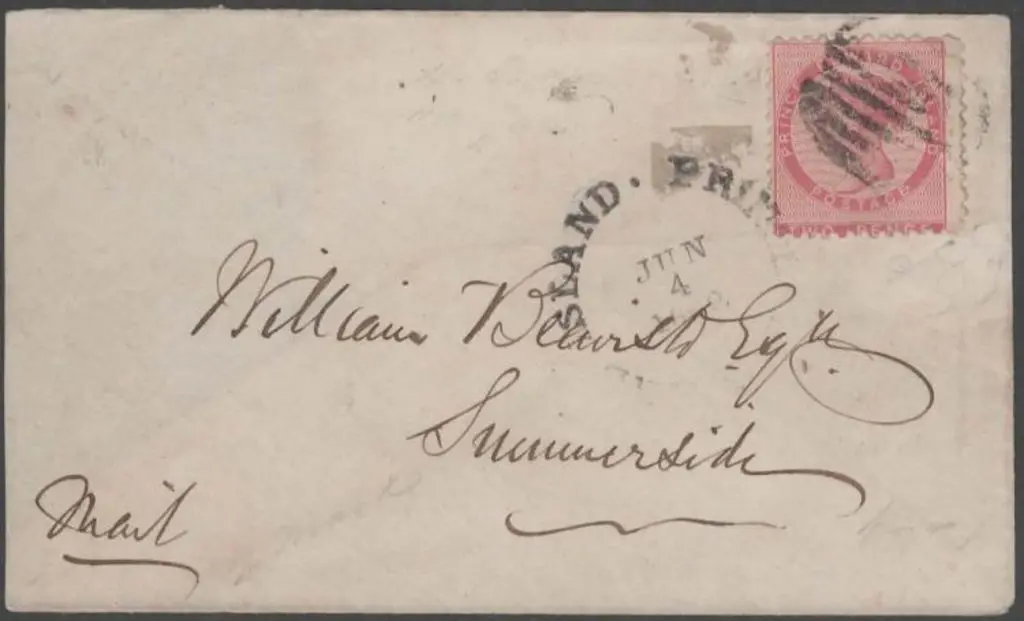 PRINCE EDWARD ISLAND
POSTAGE
TWO PENCE
SLAND · PRIN
JUN
4
William Beairsto Esqr
Summerside
Mail